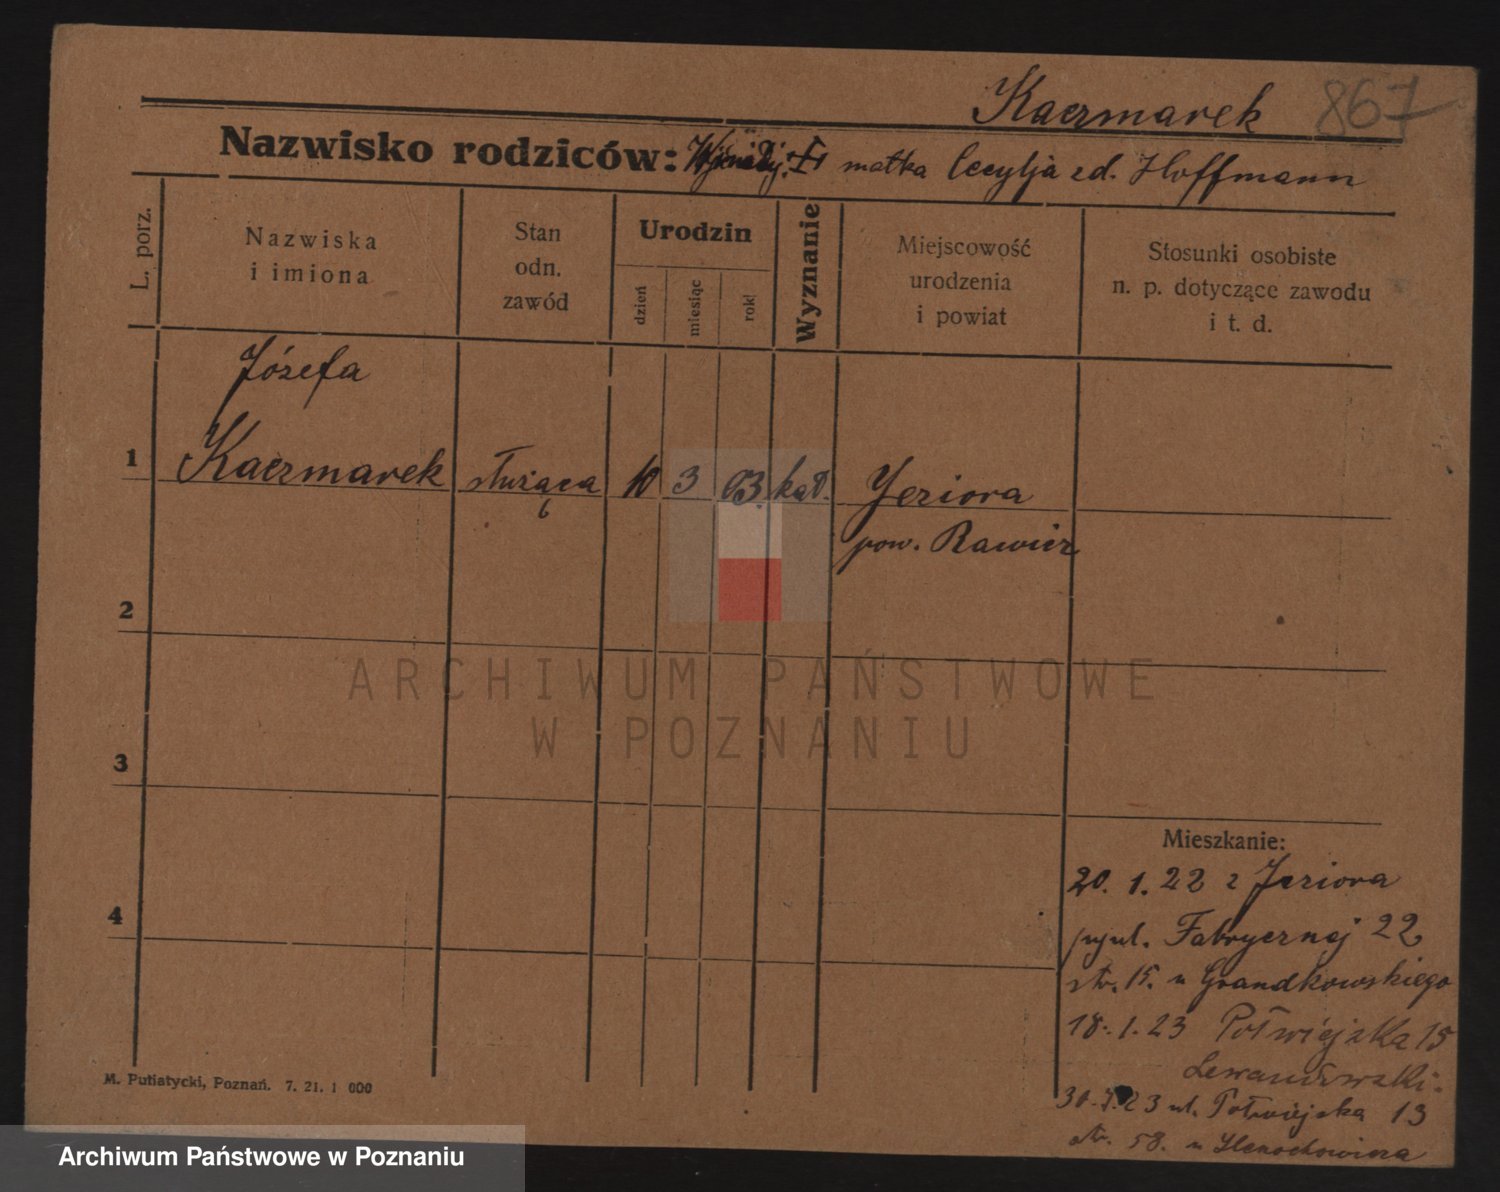 Kaczmarek 867
Nazwisko rodziców: matka Cecylja zd. Hoffmann
L. porz.
Nazwiska
i imiona
Stan
odn.
zawód
Urodzin
dzień
miesiąc
rok
Wyznanie
Miejscowość
urodzenia
i powiat
Stosunki osobiste
n. p. dotyczące zawodu
i t. d.
Józefa
1 Kaczmarek służąca 10 3 03. kat. Jeziora
pow. Rawicz
2
ARCHIWUM PAŃSTWOWE
W POZNANIU
3
4
Mieszkanie:
20. 1. 22 z Jeziora
Fabrycznej 22
str. 15. u Grandkowskiego
18. 1. 23 Półwiejska 15
Lewandowski.
23 ul. Półwiejska 13
str. 58. u
M. Putiatycki, Poznań. 7. 21. 1 000
Archiwum Państwowe w Poznaniu